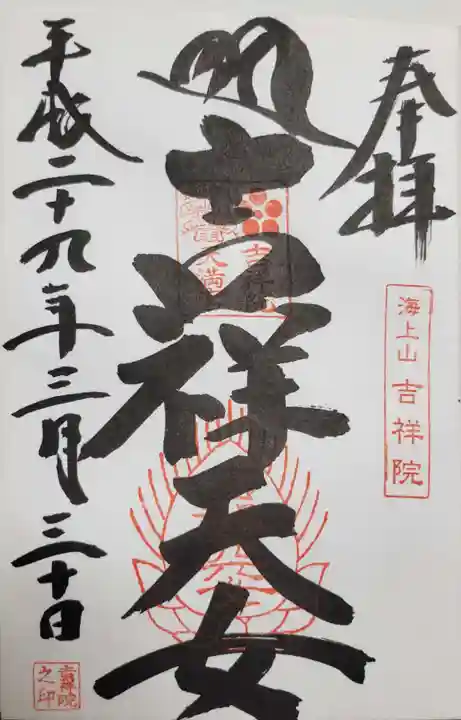 奉拝
海上山 吉祥院
吉祥天女
吉祥院
天満
平成二十九年三月三十日
吉祥院
之印